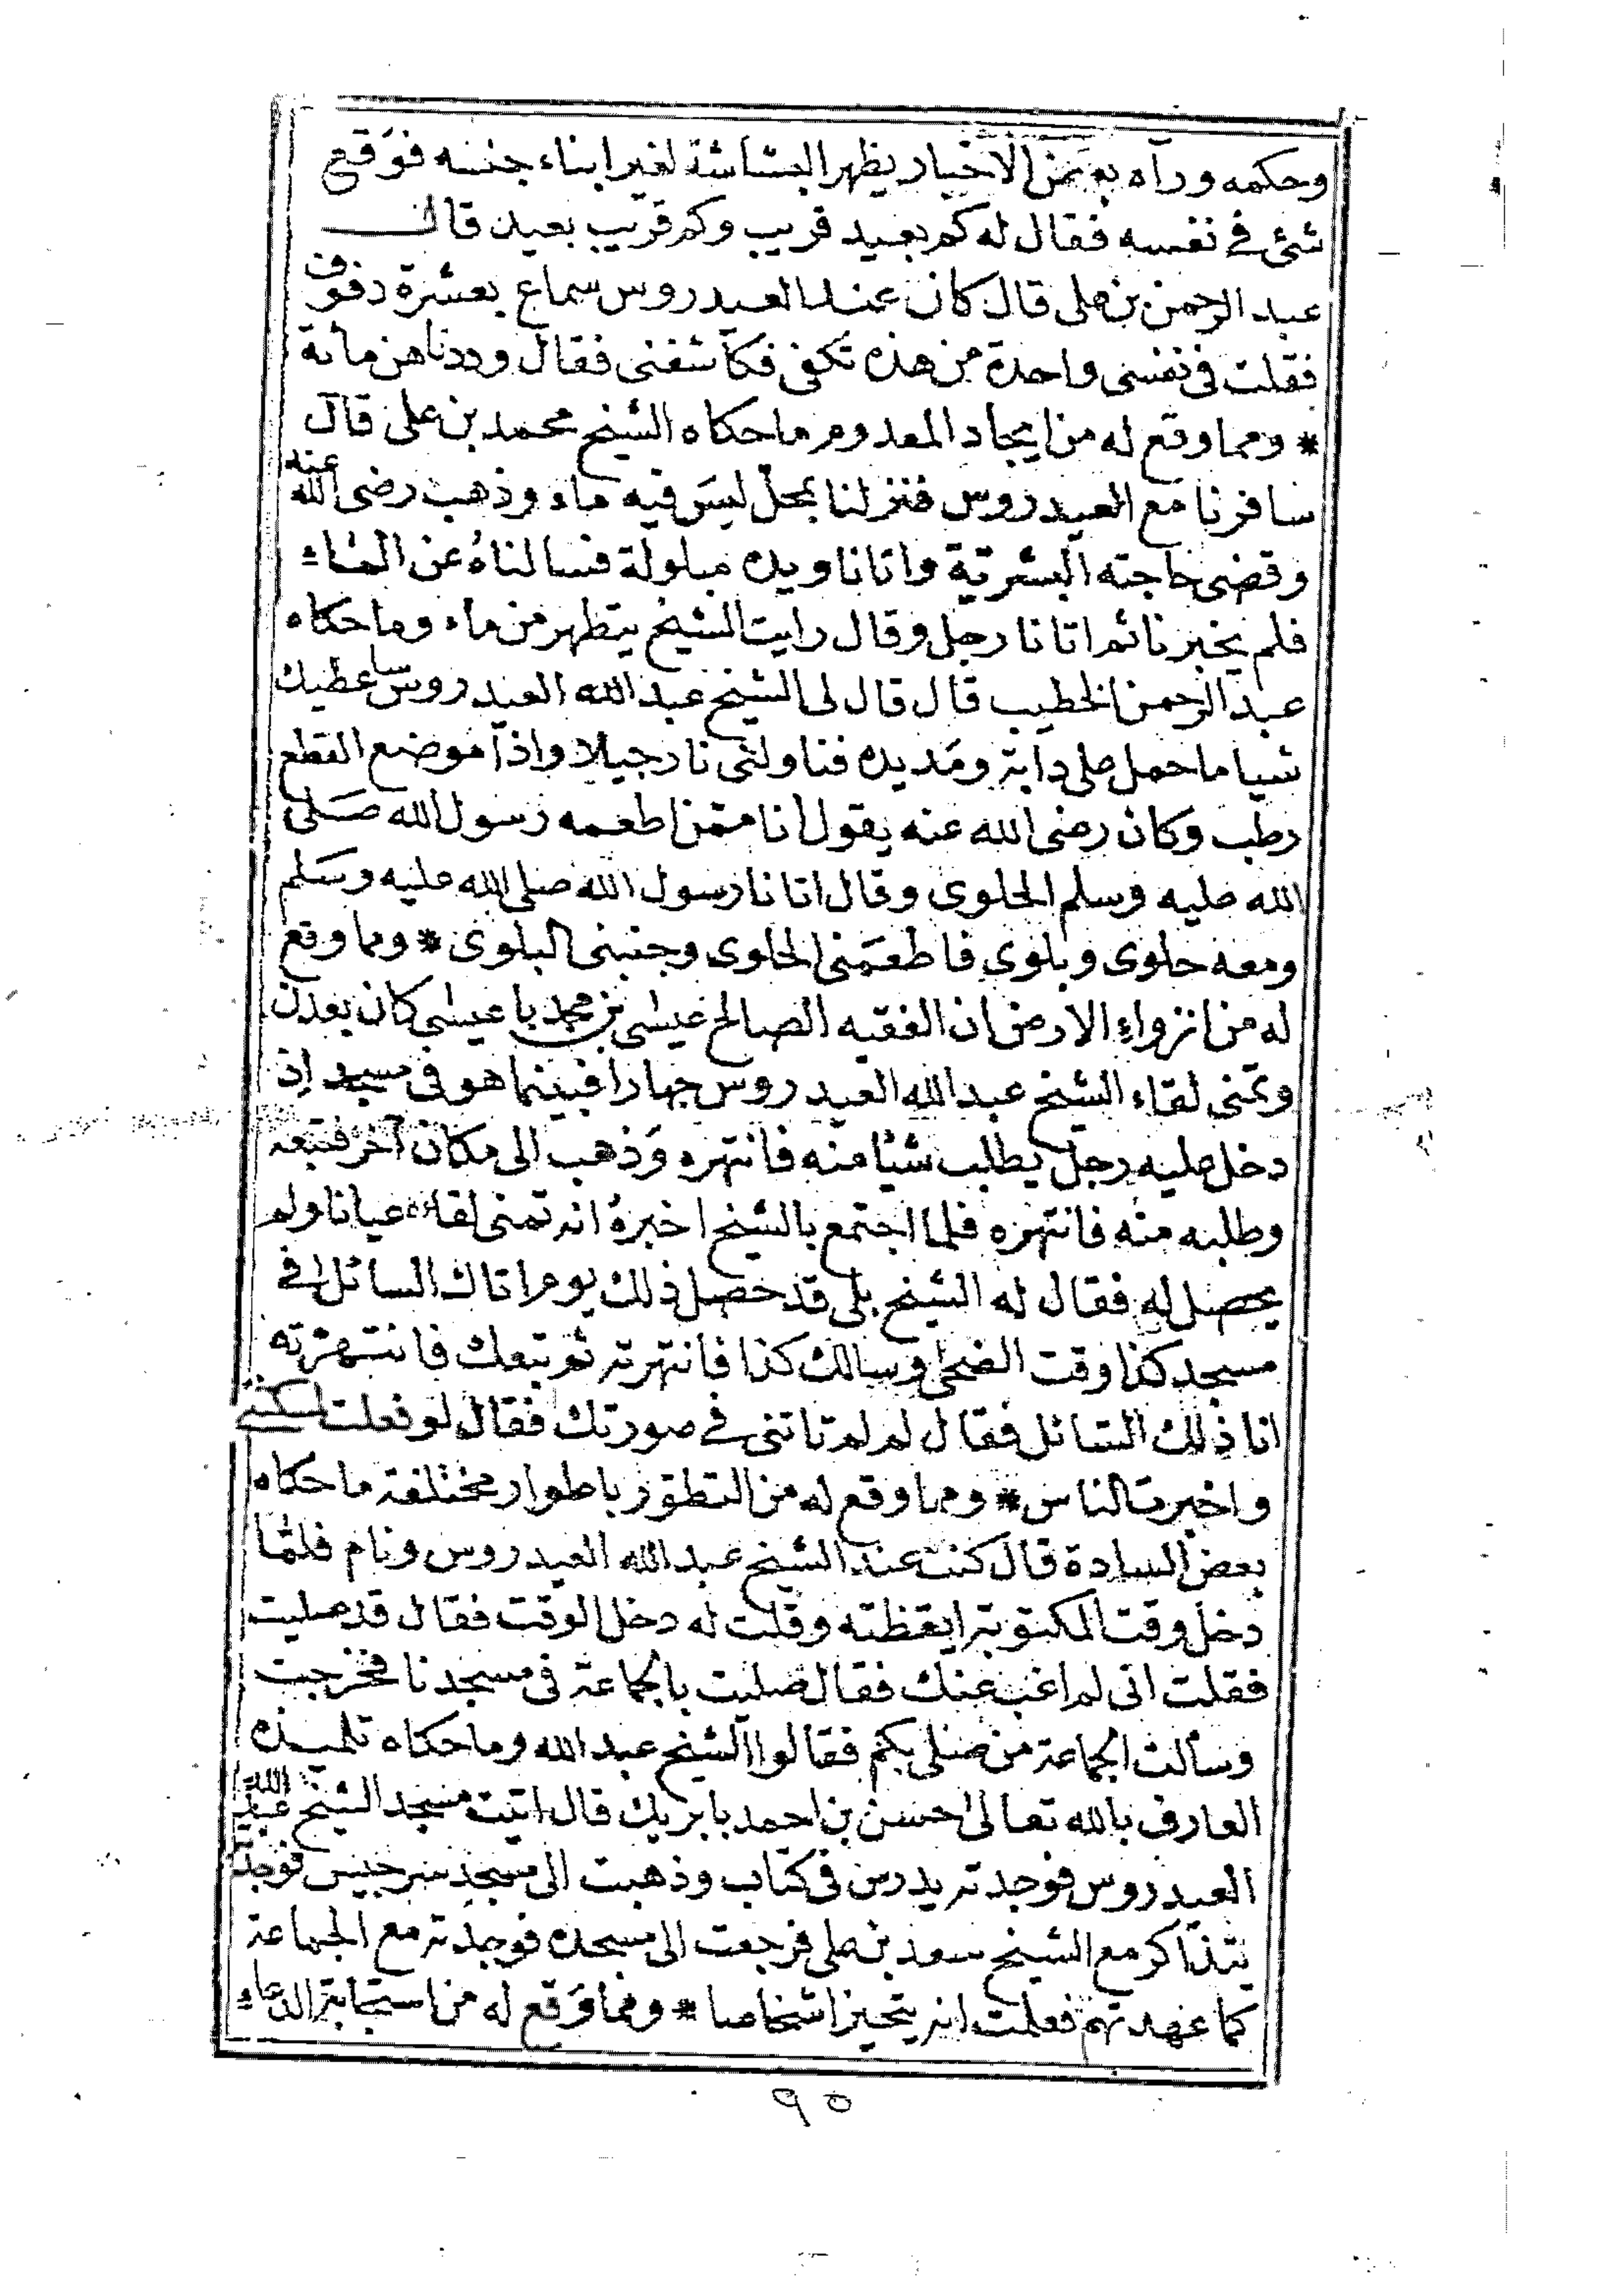 وحكمه ورآه بعض الاخيار يظهر البشاشة لغير ابناء جنسه فوقع
شئ في نفسه فقال له كم بعيد قريب وكم قريب بعيد قال
عبد الرحمن بن علي قال كان عند العيدروس سماع بعشرة دفوف
فقلت في نفسي واحدة من هذه تكفى فكاشفنى فقال وددناهن مائة
* ومما وقع له من ايجاد المعدوم ما حكاه الشيخ محمد بن على قال
سافرنا مع العيدروس فنزلنا بمحل ليس فيه ماء وذهب رضى الله عنه
وقضى حاجته البشرية واتانا ويده مبلولة فسالناه عن الماء
فلم يخبرنا ثم اتانا رجل وقال رايت الشيخ يتطهر من ماء وما حكاه
عبد الرحمن الخطيب قال قال لى الشيخ عبد الله العيدروس ساعطيك
شيا ما حمل على دابة ومد يده فناولنى نارجيلا واذا موضع القطع
رطب وكان رضى الله عنه يقول انا ممن اطعمه رسول الله صلى
الله عليه وسلم الحلوى وقال اتانا رسول الله صلى الله عليه وسلم
ومعه حلوى وبلوى فاطعمنى الحلوى وجنبنى البلوى * ومما وقع
له من انزواء الارض ان الفقيه الصالح عيسى بن محمد با عيسى كان بعدن
وتمنى لقاء الشيخ عبد الله العيدروس جهارا فبينما هو فى مسجد اذ
دخل عليه رجل يطلب شيئا منه فانتهره وذهب الى مكان آخر فتبعه
وطلبه منه فانتهره فلما اجتمع بالشيخ اخبره انه تمنى لقاءه عيانا ولم
يحصل له فقال له الشيخ بلى قد حصل ذلك يوم اتاك السائل فى
مسجد كذا وقت الضحى وسالك كذا فانتهرته ثم تبعك فانتهرته
انا ذلك السائل فقال لم لم تاتنى فى صورتك فقال لو فعلت لمسكتنى
واخبرت الناس * ومما وقع له من التطور باطوار مختلفة ما حكاه
بعض السادة قال كنت عند الشيخ عبد الله العيدروس ونام فلما
دخل وقت المكتوبة ايقظته وقلت له دخل الوقت فقال قد صليت
فقلت انى لم اغب عنك فقال صليت بالجماعة فى مسجدنا فخرجت
وسألت الجماعة من صلى بكم فقالوا الشيخ عبد الله وما حكاه تلميذه
العارف بالله تعالى حسن بن احمد با بريك قال اتيت مسجد الشيخ عبد الله
العيدروس فوجدته يدرس فى كتاب وذهبت الى مسجد سرجيس فوجدته
يتذاكر مع الشيخ سعد بن على فرجعت الى مسجده فوجدته مع الجماعة
كما عهدتهم فعلمت انه يتحيز اشخاصا * ومما وقع له من استجابة الدعاء
٩٥